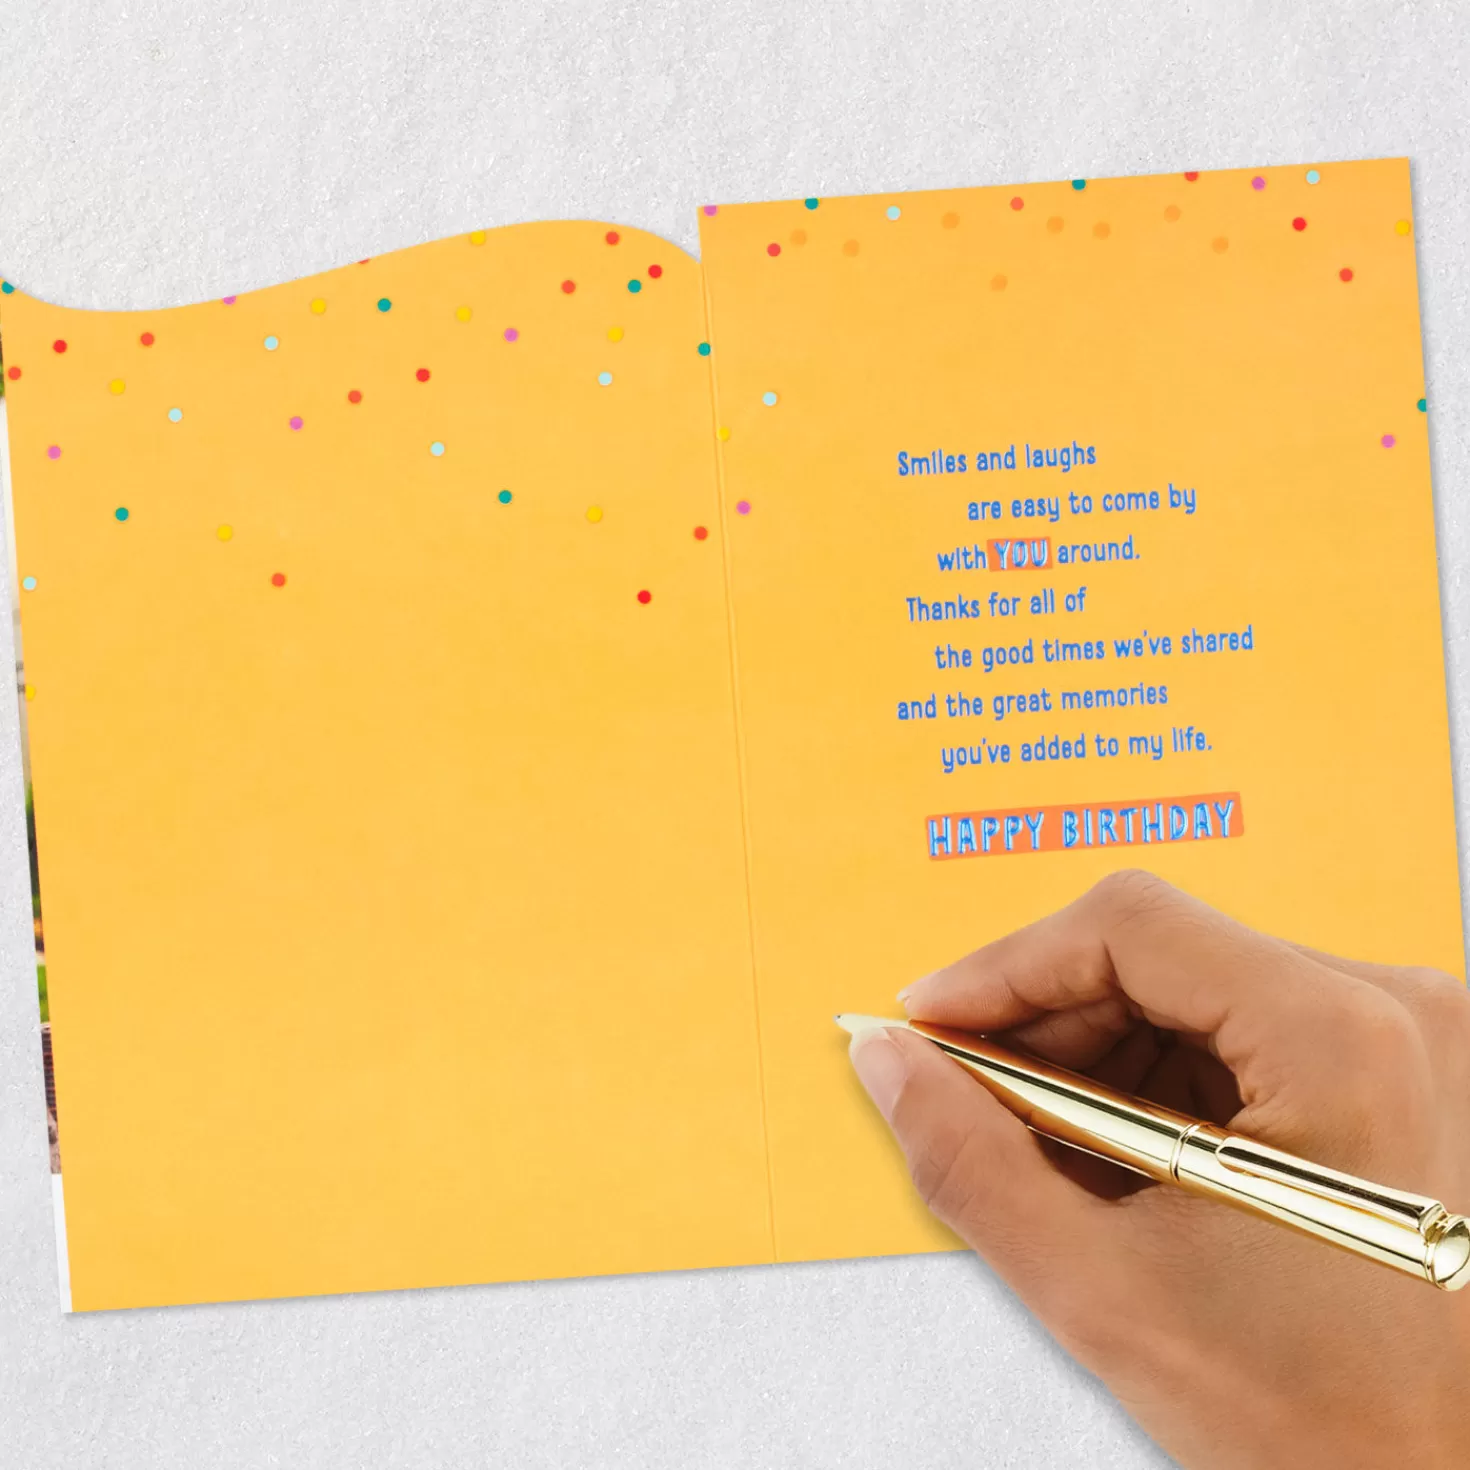 Smiles and laughs
are easy to come by
with YOU around.
Thanks for all of
the good times we've shared
and the great memories
you've added to my life.
HAPPY BIRTHDAY